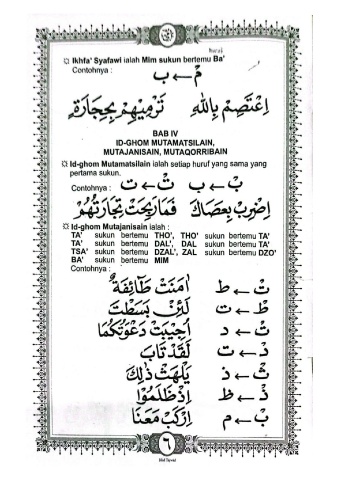 huruf
Ikhfa' Syafawi ialah Mim sukun bertemu Ba'
Contohnya :
مْ ← ب
اِعْتَصِمْ بِاللهِ تَرْمِيْهِمْ بِحِجَارَةٍ
BAB IV
ID-GHOM MUTAMATSILAIN,
MUTAJANISAIN, MUTAQORRIBAIN
Id-ghom Mutamatsilain ialah setiap huruf yang sama yang
pertama sukun.
Contohnya : بْ ← ب تْ ← ت
اِضْرِبْ بِعَصَاكَ فَمَا رَبِحَتْ تِجَارَتُهُمْ
Id-ghom Mutajanisain ialah :
TA' sukun bertemu THO', THO' sukun bertemu TA'
TA' sukun bertemu DAL', DAL sukun bertemu TA'
TSA' sukun bertemu DZAL', ZAL sukun bertemu DZO'
BA' sukun bertemu MIM
Contohnya :
تْ ← ط اٰمَنَتْ طَائِفَةٌ
طْ ← ت لَئِنْ بَسَطْتَ
تْ ← د اُجِيْبَتْ دَعْوَتُكُمَا
دْ ← ت لَقَدْ تَابَ
ثْ ← ذ يَلْهَثْ ذٰلِكَ
ذْ ← ظ اِذْ ظَلَمُوْا
بْ ← م اِرْكَبْ مَعَنَا
٦